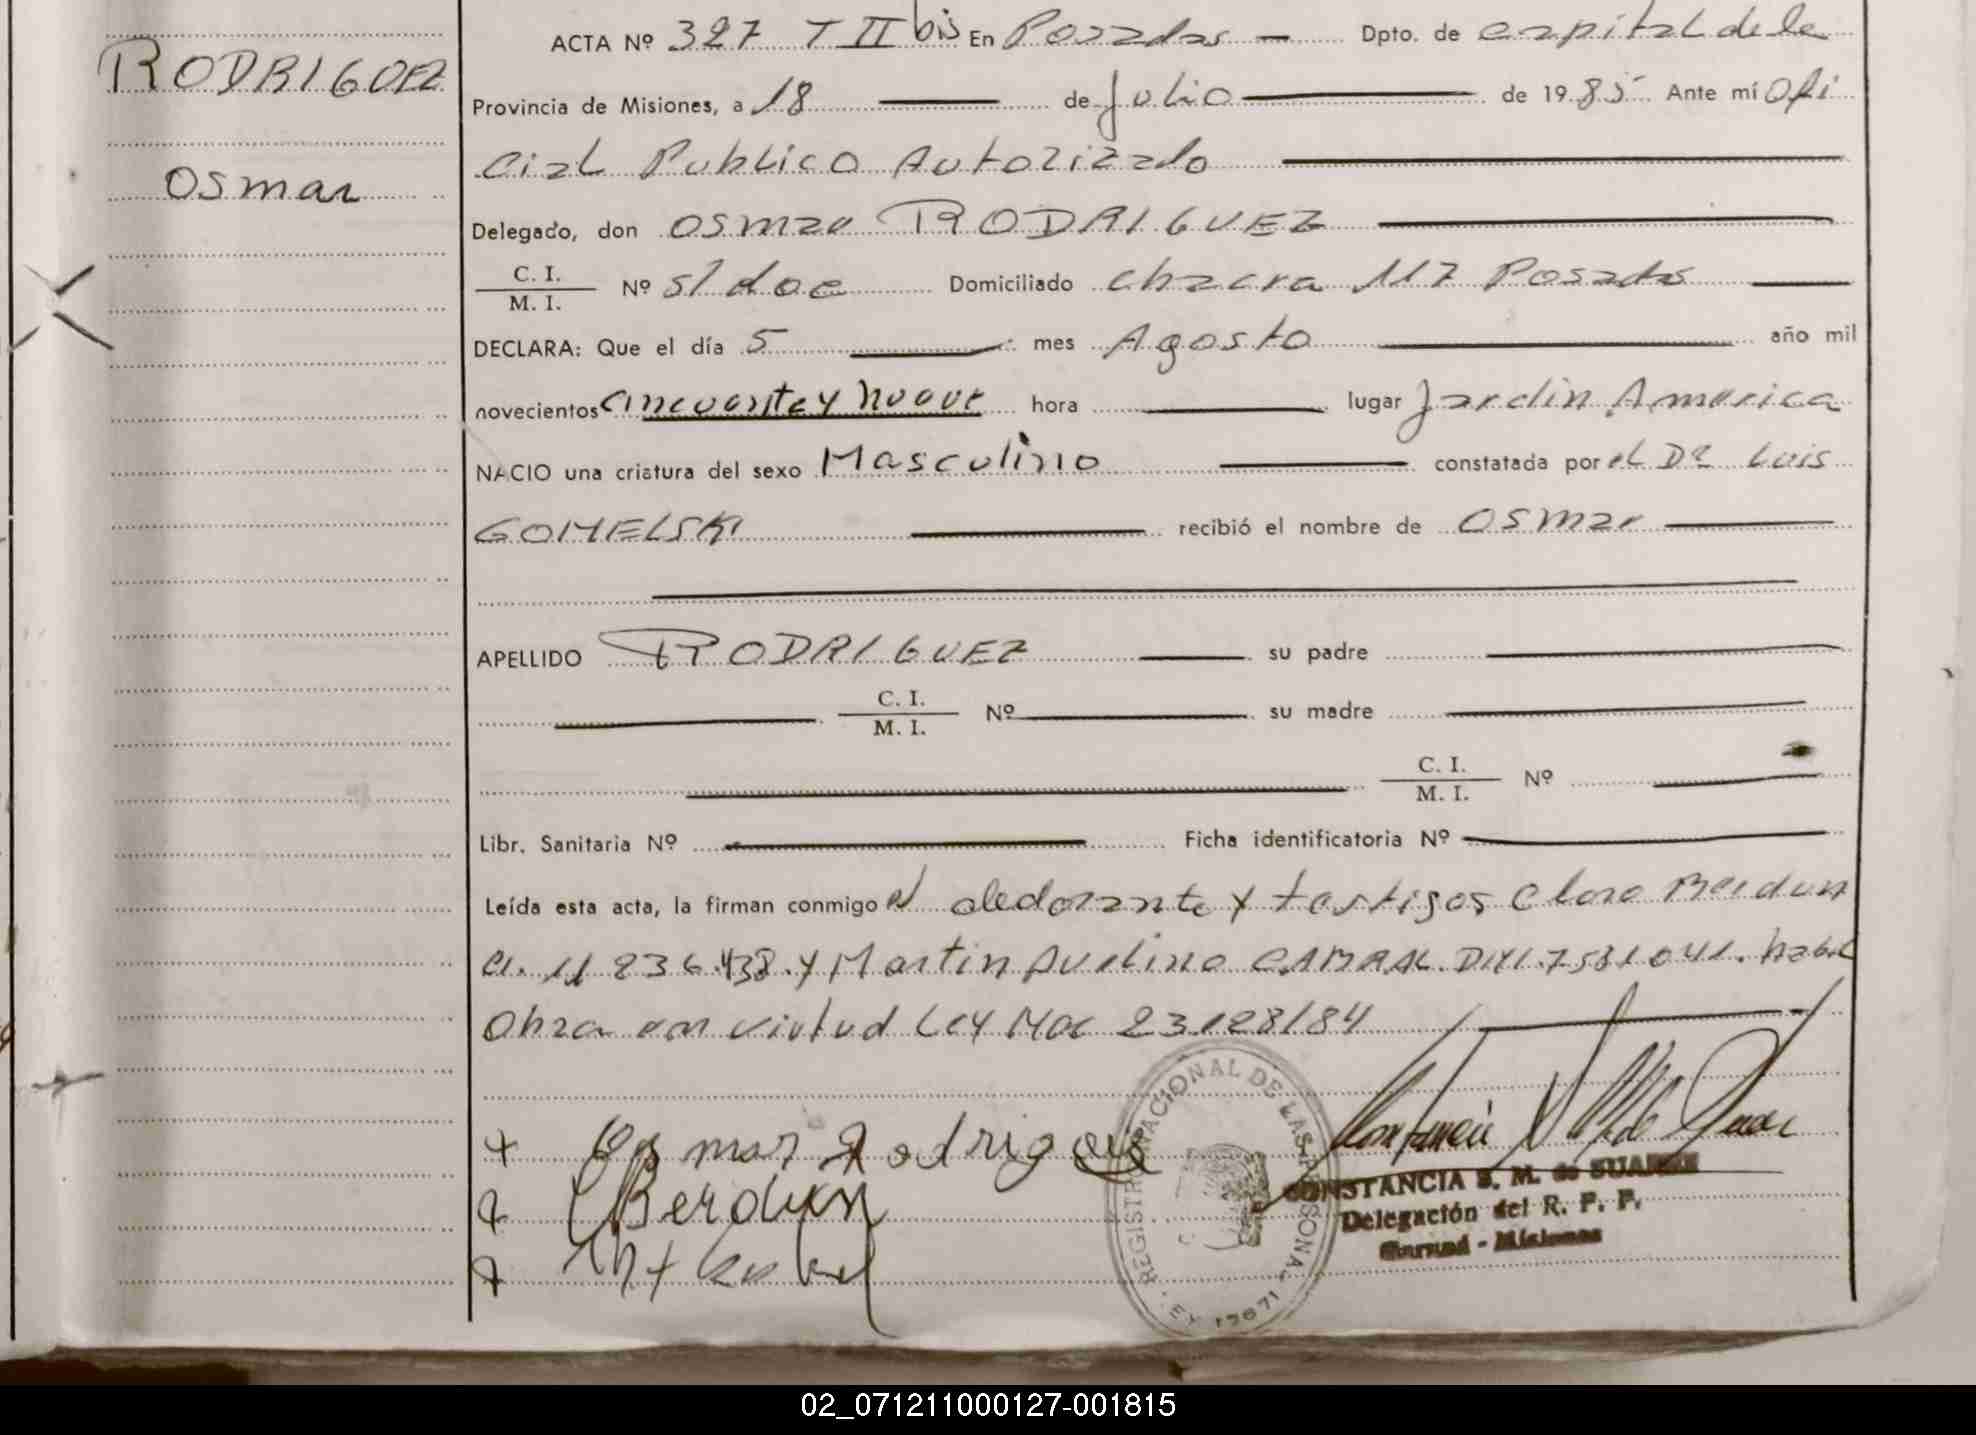 RODRIGUEZ
Osmar
ACTA Nº 327 T II bis En Posadas Dpto. de capital de la
Provincia de Misiones, a 18 de Julio de 1985 Ante mí Ofi
cial Publico Autorizado
Delegado, don Osmar RODRIGUEZ
C. I.
M. I. Nº s/ doc Domiciliado chacra 117 Posadas
DECLARA: Que el día 5 mes Agosto año mil
novecientos cincuenta y nueve hora lugar Jardin America
NACIO una criatura del sexo Masculino constatada por el Dr Luis
GOMELSKI recibió el nombre de Osmar
APELLIDO RODRIGUEZ su padre
C. I.
M. I. Nº su madre
C. I.
M. I. Nº
Libr. Sanitaria Nº Ficha identificatoria Nº
Leída esta acta, la firman conmigo el testigos Berdun
CI. 11 236.438. y Martin Avelino CABRAL. DNI. 7581041.
Obra en virtud Ley Nac 23128/84
Osmar Rodrigues
Berdun
REGISTRO NACIONAL DE LAS PERSONAS
CONSTANCIA S. M. de SUAREZ
Delegación del R. P. P.
Misiones
02_071211000127-001815